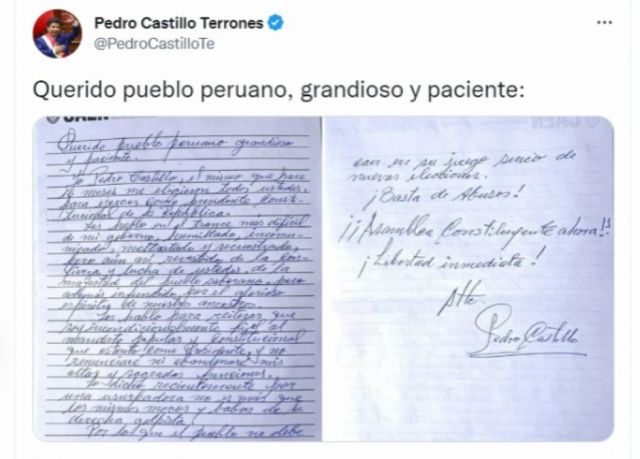 Pedro Castillo Terrones
@PedroCastilloTe
Querido pueblo peruano, grandioso y paciente:
CAEN
Querido pueblo peruano grandioso
y paciente.
Yo Pedro Castillo, el mismo que hace
16 meses me eligieron todos ustedes,
para ejercer como presidente Consti-
tucional de la República.
Les hablo en el trance más difícil
de mi gobierno, humillado, incomu-
nicado, maltratado y secuestrado,
pero aún así revestido de la con-
fianza y lucha de ustedes, de la
majestad del pueblo soberano, pero
además infundido por el glorioso
espíritu de nuestros ancestros.
Les hablo para reiterar que
soy incondicionalmente fiel al
mandato popular y constitucional
que ostento como Presidente, y no
renunciaré ni abandonaré mis
altas y sagradas funciones.
Lo dicho recientemente por
una usurpadora no es más que
los mismos mocos y babas de la
derecha golpista.
Por lo que el pueblo no debe
caer en su juego sucio de
nuevas elecciones.
¡Basta de Abusos!
¡¡Asamblea Constituyente ahora!!
¡Libertad inmediata!
Atte
Pedro Castillo